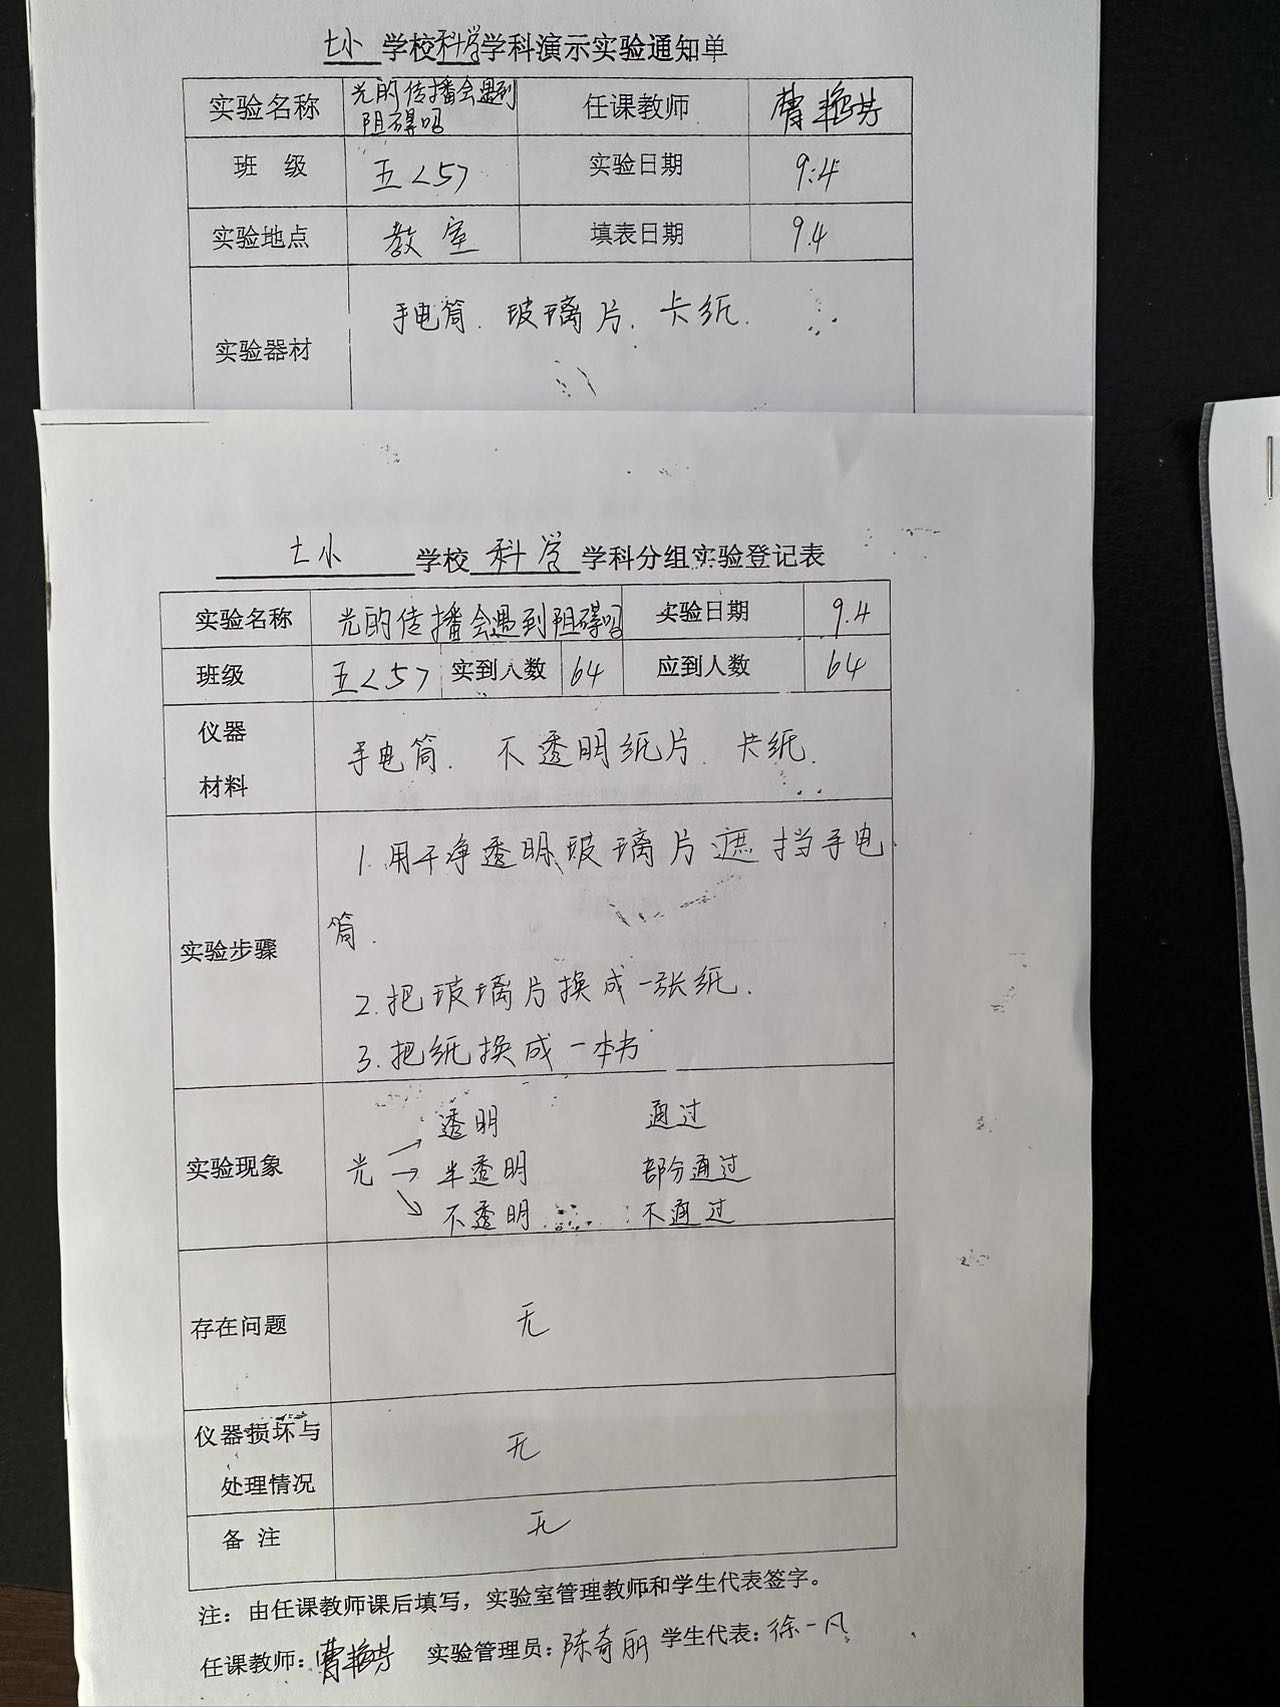 七小 学校科学学科演示实验通知单
实验名称 光的传播会遇到阻碍吗 任课教师 曹艳芬
班 级 五<5> 实验日期 9.4
实验地点 教室 填表日期 9.4
实验器材 手电筒. 玻璃片. 卡纸.
七小 学校 科学 学科分组实验登记表
实验名称 光的传播会遇到阻碍吗 实验日期 9.4
班级 五<5> 实到人数 64 应到人数 64
仪器
材料
手电筒. 不透明纸片. 卡纸.
实验步骤
1.用干净透明玻璃片遮挡手电
筒.
2.把玻璃片换成一张纸.
3.把纸换成一本书
实验现象
透明 通过
光 → 半透明 部分通过
不透明 不通过
存在问题 无
仪器损坏与
处理情况
无
备 注 无
注：由任课教师课后填写，实验室管理教师和学生代表签字。
任课教师：曹艳芬 实验管理员：陈奇丽 学生代表：徐一凡